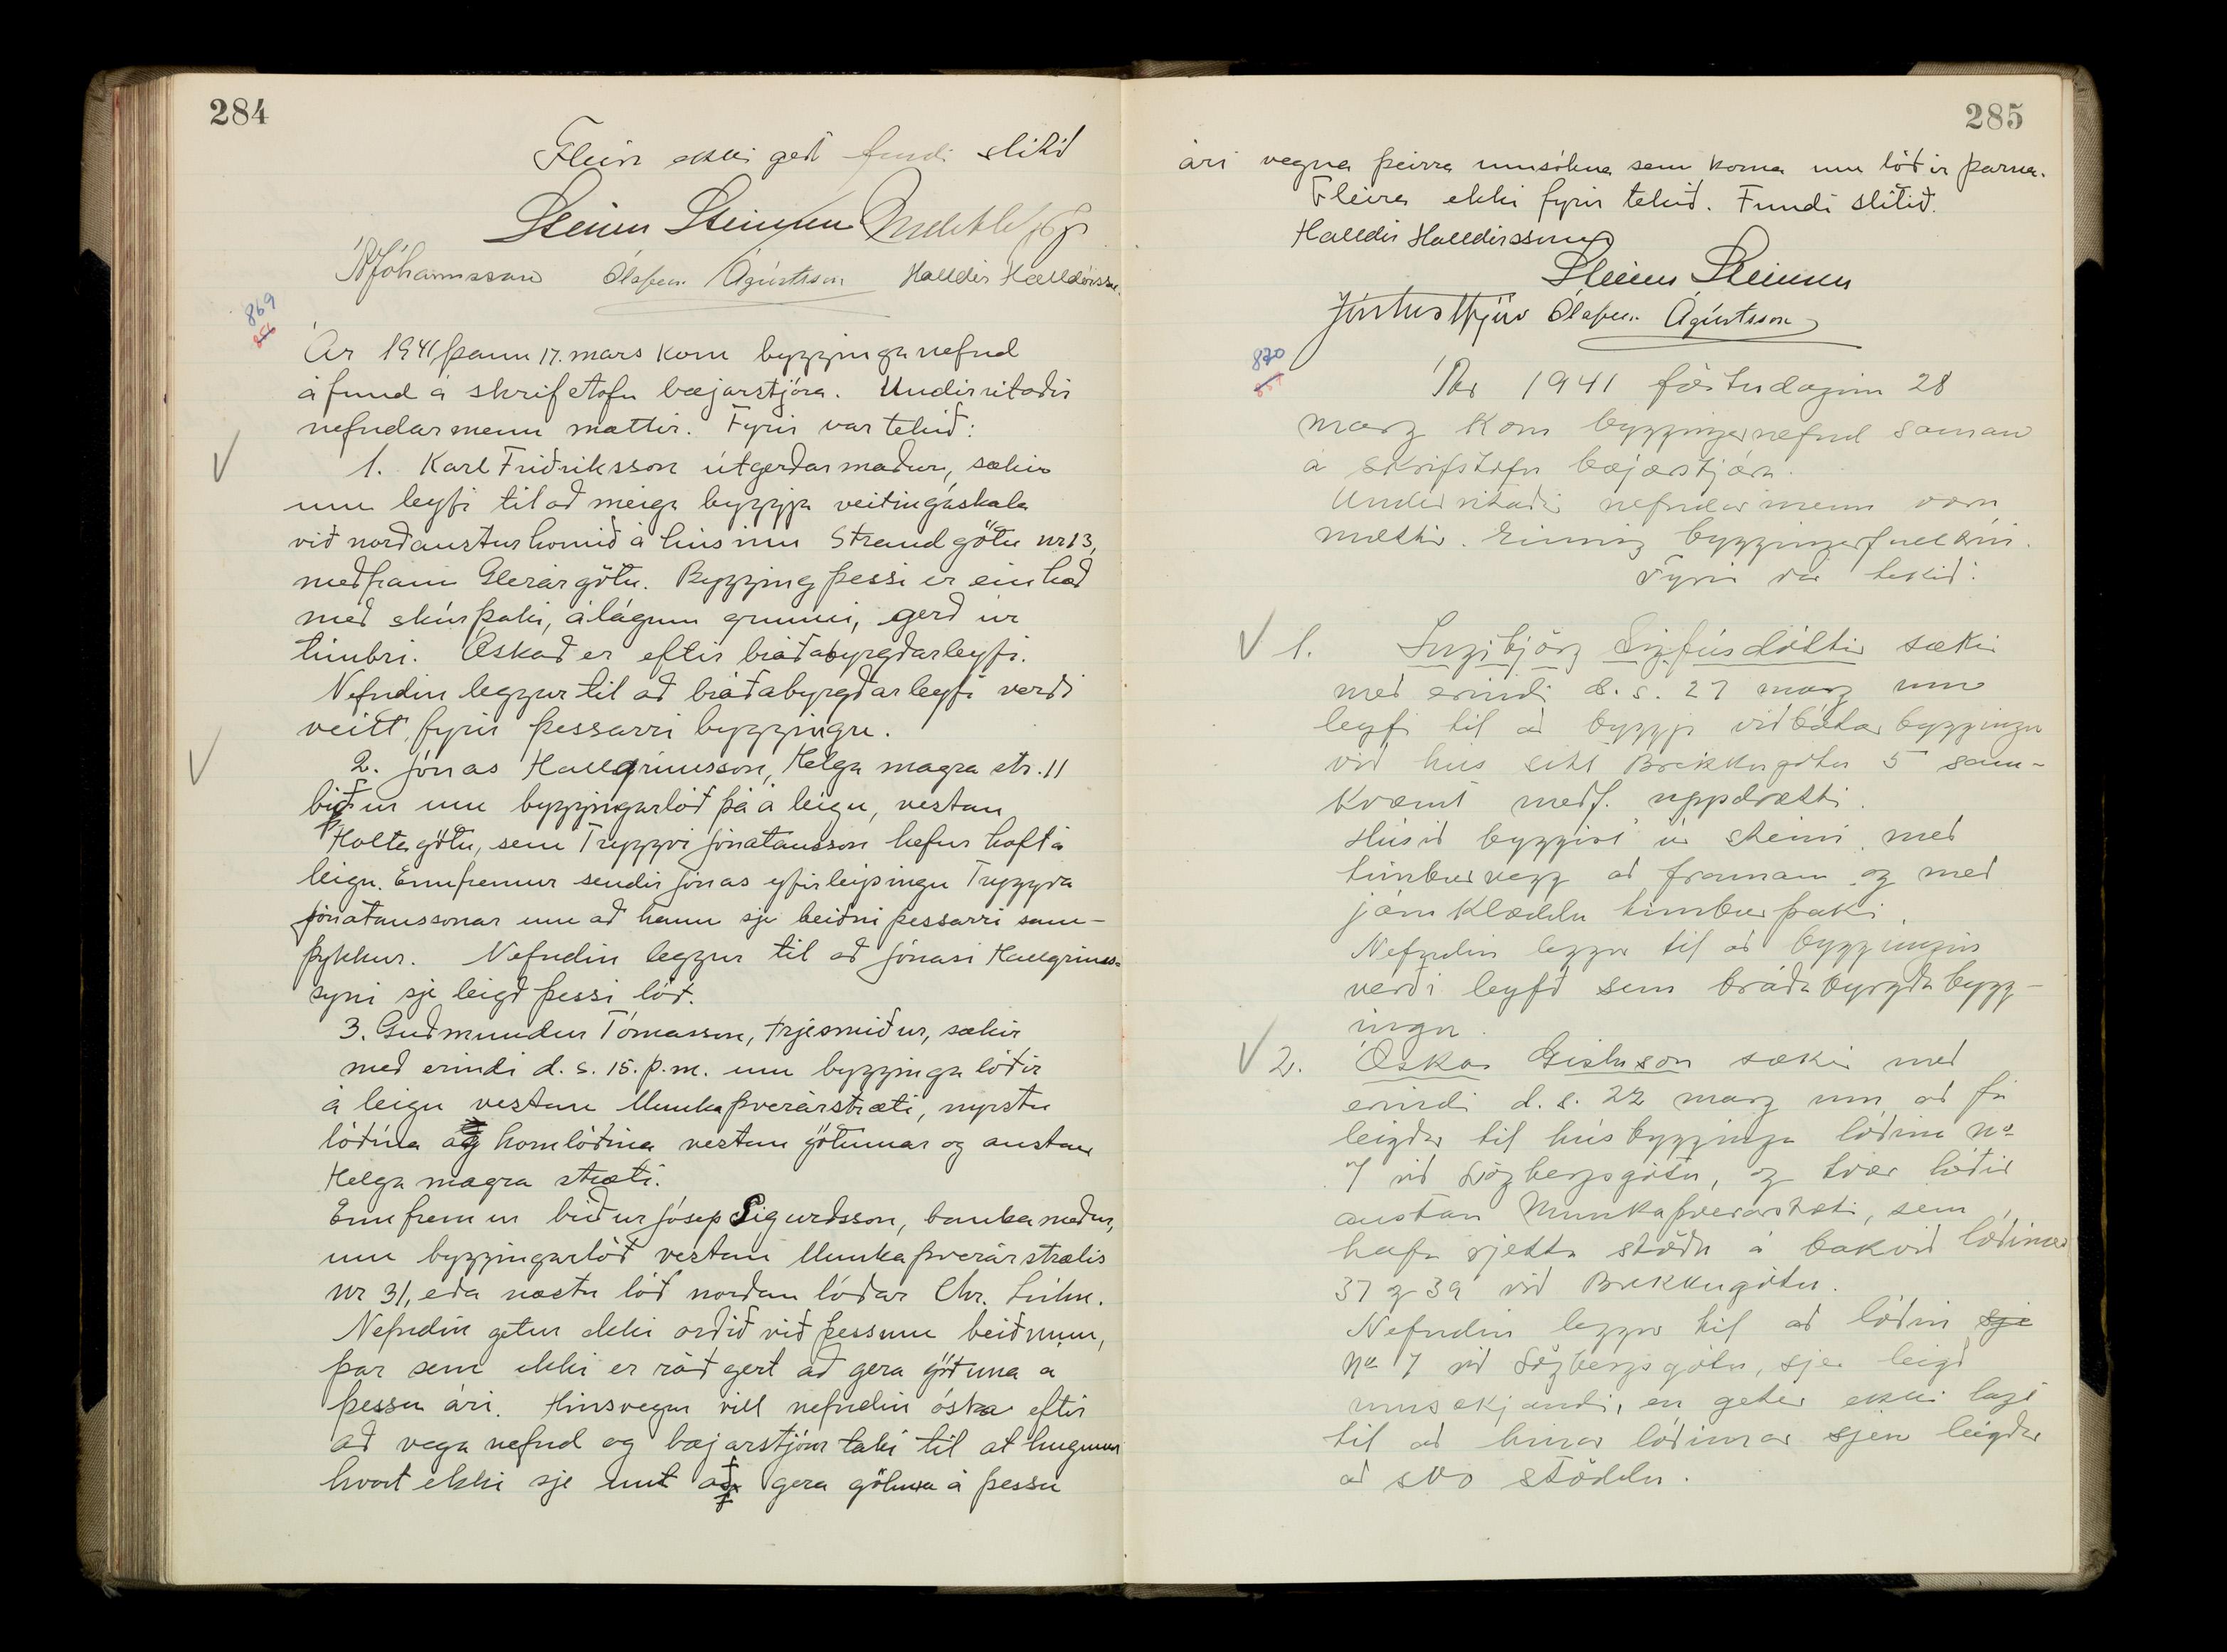 284
Fleira ekki gert fundi slitið
Steinn Steinsen
Jóhannsson Ólafur Ágústsson Halldór Halldórsson.
869
Ár 1941 þann 17. mars kom bygginganefnd
á fund á skrifstofu bæjarstjóra. Undirritaðir
nefndarmenn mættir. Fyrir var tekið:
1. Karl Friðriksson útgerðarmaður, sækir
um leyfi til að meiga byggja veitingaskála
við norðausturhornið á húsinu Strandgötu nr 13,
meðfram Glerárgötu. Bygging þessi er ein hæð
með skúrþaki, á lágum grunni, gerð úr
timbri. Óskað er eftir bráðabyrgðarleyfi.
Nefndin leggur til að bráðabyrgðarleyfi verði
veitt fyrir þessarri byggingu.
2. Jónas Hallgrímsson, Helga magra str. 11
biður um byggingarlóð þá á leigu, vestan
Holtagötu, sem Tryggvi Jónatansson hefur haft á
leigu. Ennfremur sendir Jónas yfirlýsingu Tryggva
Jónatanssonar um að hann sje beiðni þessarri sam-
þykkur. Nefndin leggur til að Jónasi Hallgríms-
syni sje leigð þessi lóð.
3. Guðmundur Tómasson, trjesmiður, sækir
með erindi d. s. 15. þ.m. um bygginga lóðir
á leigu vestan Munkaþverárstræti, nyrstu
lóðina og hornlóðina vestan götunnar og austan
Helga magra stræti.
Ennfremur biður Jósep Sigurðsson, bankamaður,
um byggingarlóð vestan Munkaþverárstrætis
nr 31, eða næstu lóð norðan lóðar Chr.
Nefndin getur ekki orðið við þessum beiðnum,
þar sem ekki er ráðgert að gera götuna á
þessu ári. Hinsvegar vill nefndin óska eftir
að veganefnd og bæjarstjórn taki til athugunar
hvort ekki sje unt að gera götuna á þessu
285
ári vegna þeirra umsókna sem koma um lóðir þarna.
Fleira ekki fyrir tekið. Fundi slitið.
Halldór Halldórsson
Steinn Steinsen
Ólafur Ágústsson
870
Ár 1941 föstudaginn 28
marz kom bygginganefnd saman
á skrifstofu bæjarstjóra.
Undirritaðir nefndarmenn voru
mættir. Einnig byggingafulltrúi.
Fyrir var tekið:
1. Ingibjörg Sigfúsdóttir sækir
með erindi d. s. 27 marz um
leyfi til að byggja viðbótarbyggingu
við hús sitt Brekkugötu 5 sam-
kvæmt meðf. uppdrætti.
Húsið byggist úr steini með
timburvegg að framan og með
járnklæddu timburþaki.
Nefndin leggur til að byggingin
verði leyfð sem bráðabyrgða bygg-
ingu.
2. Óskar Gíslason sækir með
erindi d. s. 22 marz um að fá
leigðar til húsbygginga lóðina no
7 við Lögbergsgötu, og tvær lóðir
austan Munkaþverárstræti, sem
hafa rjetta stöðu á bakvið lóðirnar
37 og 39 við Brekkugötu.
Nefndin leggur til að lóðin sje
no 7 við Lögbergsgötu, sje leigð
umsækjandi, en getur ekki lagt
til að hinar lóðirnar sjeu leigðar
að svo stöddu.